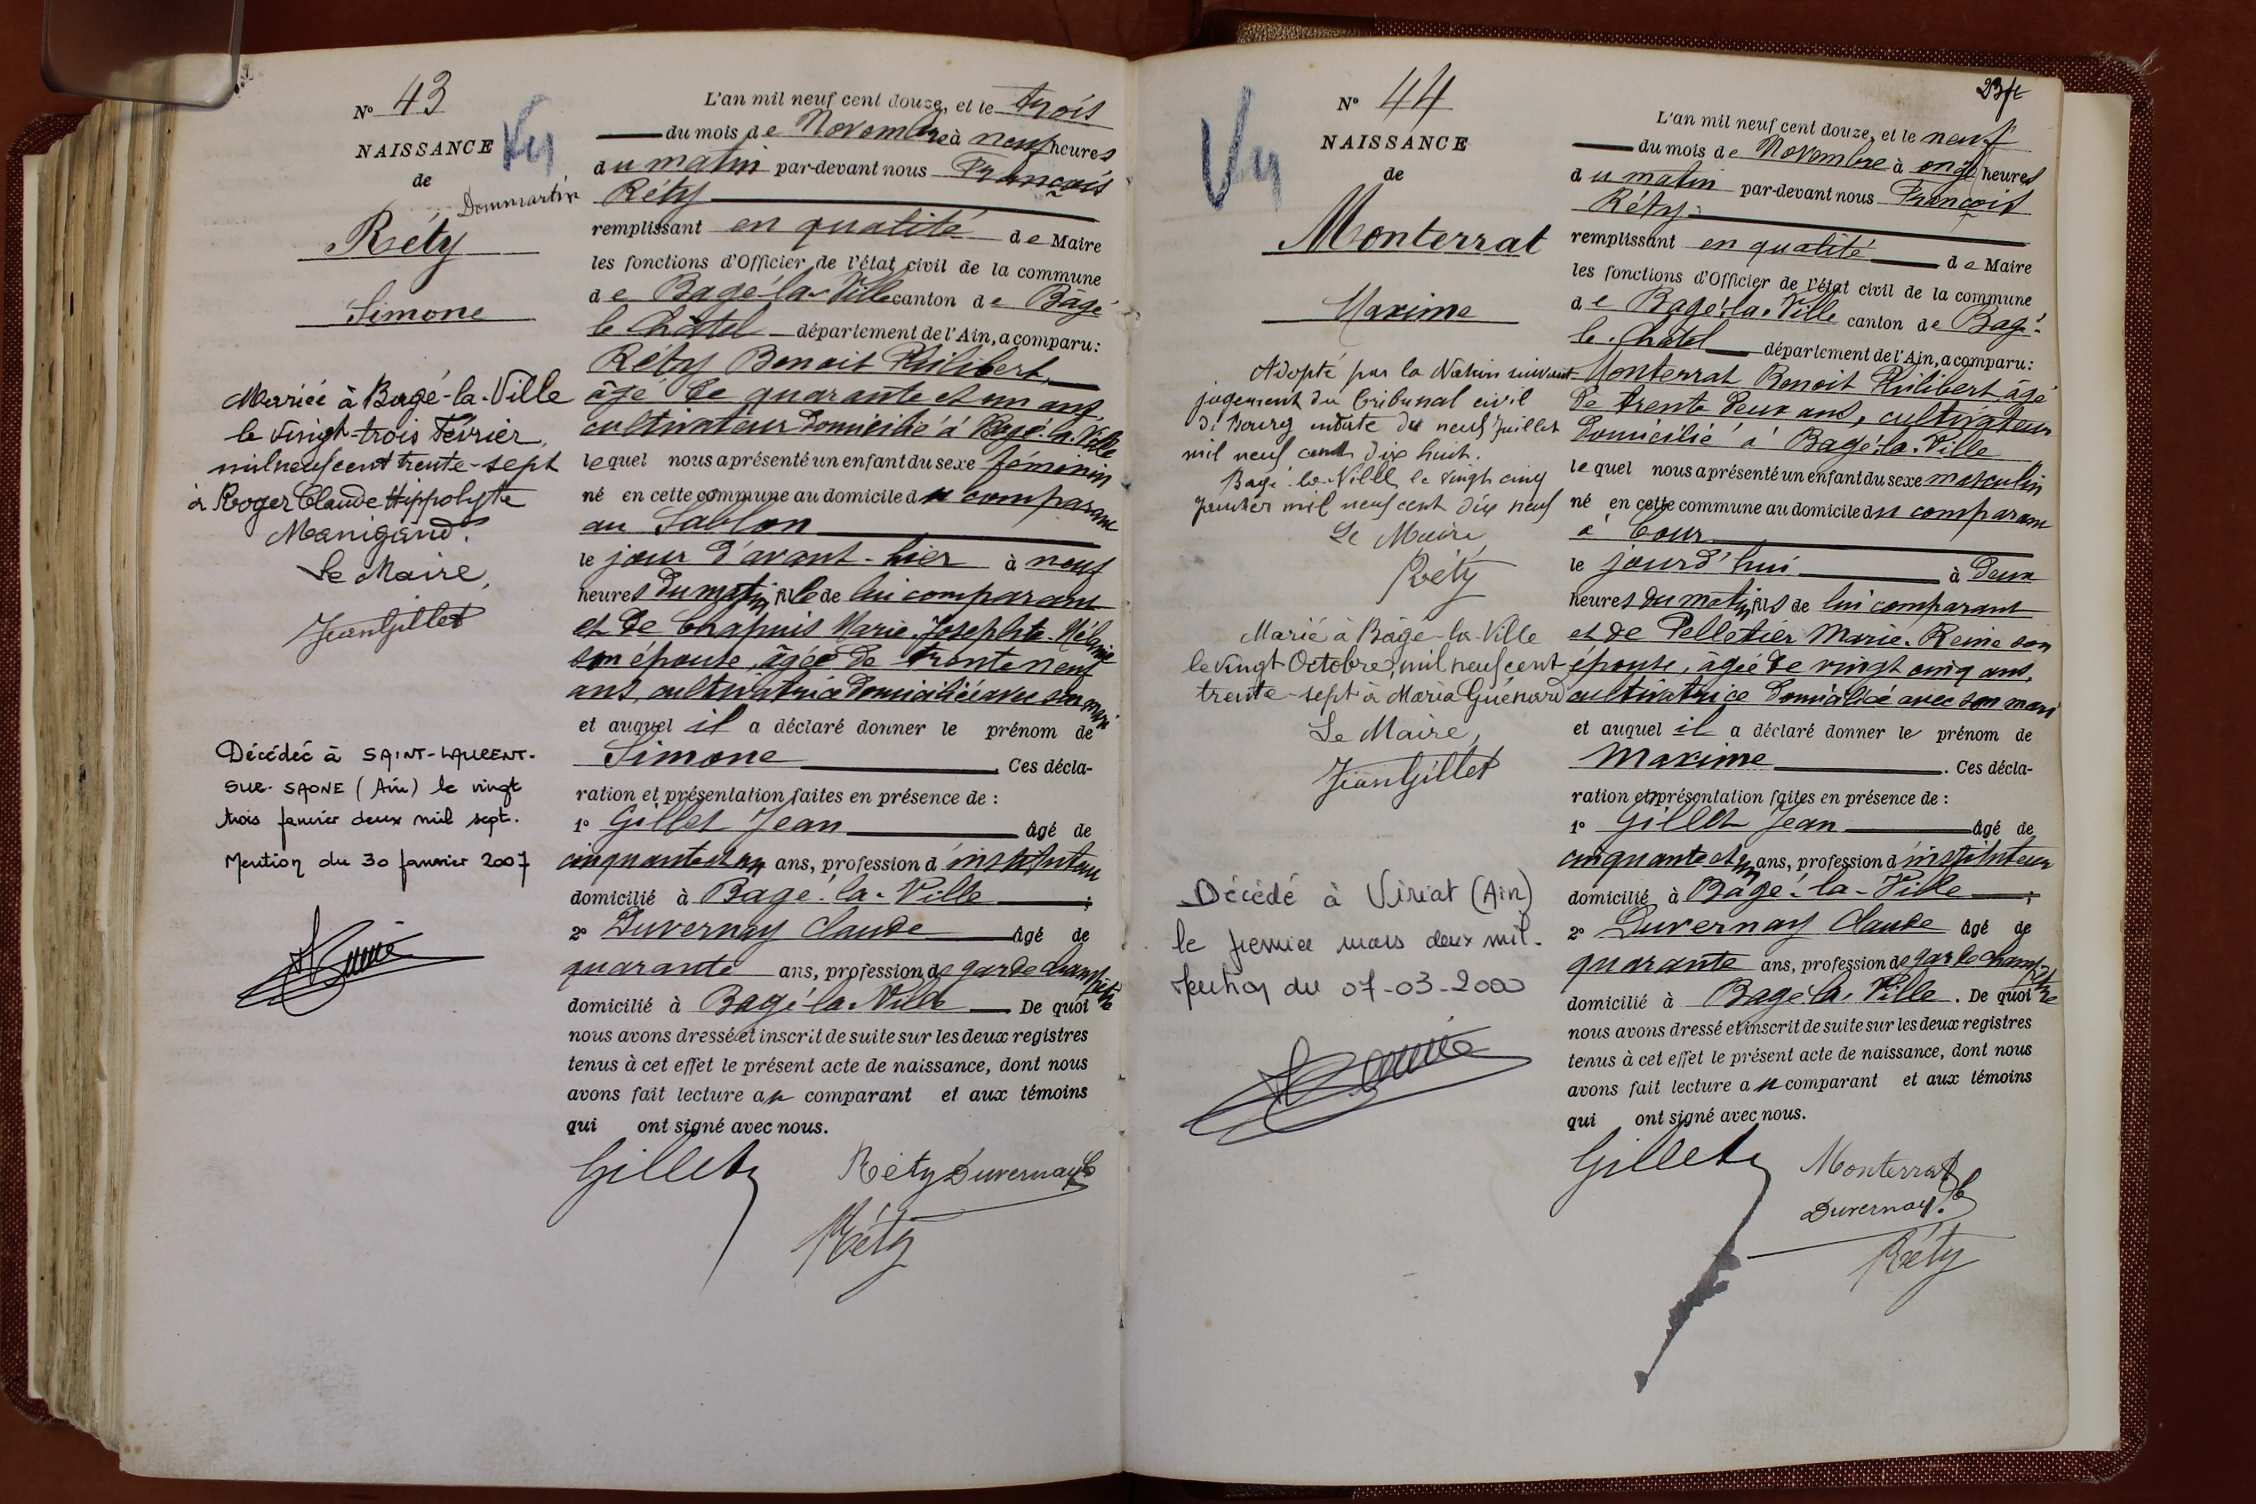 N° 43
NAISSANCE
Vu
de
Dommartin
Réty
Simone
Mariée à Bagé-la-Ville
le vingt-trois Février
mil neuf cent trente-sept
à Roger Claude Hippolyte
Manigand.
Le Maire,
Jean Gillet
Décédée à SAINT-LAURENT-
SUR-SAONE (Ain) le vingt
trois janvier deux mil sept.
Mention du 30 janvier 2007
L'an mil neuf cent douze, et le trois
du mois de Novembre à neuf heures
du matin par-devant nous François
Réty
remplissant en qualité de Maire
les fonctions d'Officier de l'état civil de la commune
de Bagé-la-Ville canton de Bâgé
le Châtel département de l'Ain, a comparu:
Réty Benoit Philibert,
âgé de quarante et un ans,
cultivateur domicilié à Bagé-la-Ville
lequel nous a présenté un enfant du sexe féminin
né en cette commune au domicile du comparant
au Sablon
le jour d'avant-hier à neuf
heures du matin, fille de lui comparant
et de Chapuis Marie-Josephte-Mélanie
son épouse, âgée de trente neuf
ans, cultivatrice domiciliée avec son mari
et auquel il a déclaré donner le prénom de
Simone . Ces décla-
ration et présentation faites en présence de :
1° Gillet Jean âgé de
cinquante et un ans, profession d'instituteur
domicilié à Bagé-la-Ville ;
2° Duvernay Claude âgé de
quarante ans, profession de garde champêtre
domicilié à Bagé-la-Ville De quoi
nous avons dressé et inscrit de suite sur les deux registres
tenus à cet effet le présent acte de naissance, dont nous
avons fait lecture au comparant et aux témoins
qui ont signé avec nous.
Gillet Réty Duvernay
Réty
N° 44
NAISSANCE
Vu
de
Monterrat
Maxime
Adopté par la Nation suivant
jugement du tribunal civil
de Bourg en date du neuf Juillet
mil neuf cent dix huit.
Bagé-la-Ville, le vingt cinq
Janvier mil neuf cent dix neuf
Le Maire
Réty
Marié à Bâgé-la-Ville
le vingt Octobre, mil neuf cent
trente-sept à Maria Guénard
Le Maire,
Jean Gillet
Décédé à Viriat (Ain)
le premier mars deux mil.
Mention du 07-03-2000
23
L'an mil neuf cent douze, et le neuf
du mois de Novembre à onze heures
du matin par-devant nous François
Réty
remplissant en qualité de Maire
les fonctions d'Officier de l'état civil de la commune
de Bagé-la-Ville canton de Bagé-
le-Châtel département de l'Ain, a comparu:
Monterrat Benoit Philibert âgé
de trente deux ans, cultivateur
domicilié à Bagé-la-Ville
lequel nous a présenté un enfant du sexe masculin
né en cette commune au domicile du comparant
à Cour
le jourd'hui à deux
heures du matin, fils de lui comparant
et de Pelletier Marie-Reine son
épouse, âgée de vingt cinq ans,
cultivatrice domiciliée avec son mari
et auquel il a déclaré donner le prénom de
Maxime . Ces décla-
ration et présentation faites en présence de :
1° Gillet Jean âgé de
cinquante et un ans, profession d'instituteur
domicilié à Bâgé-la-Ville ;
2° Duvernay Claude âgé de
quarante ans, profession de garde champêtre
domicilié à Bagé-la-Ville . De quoi
nous avons dressé et inscrit de suite sur les deux registres
tenus à cet effet le présent acte de naissance, dont nous
avons fait lecture au comparant et aux témoins
qui ont signé avec nous.
Gillet Monterrat
Duvernay
Réty